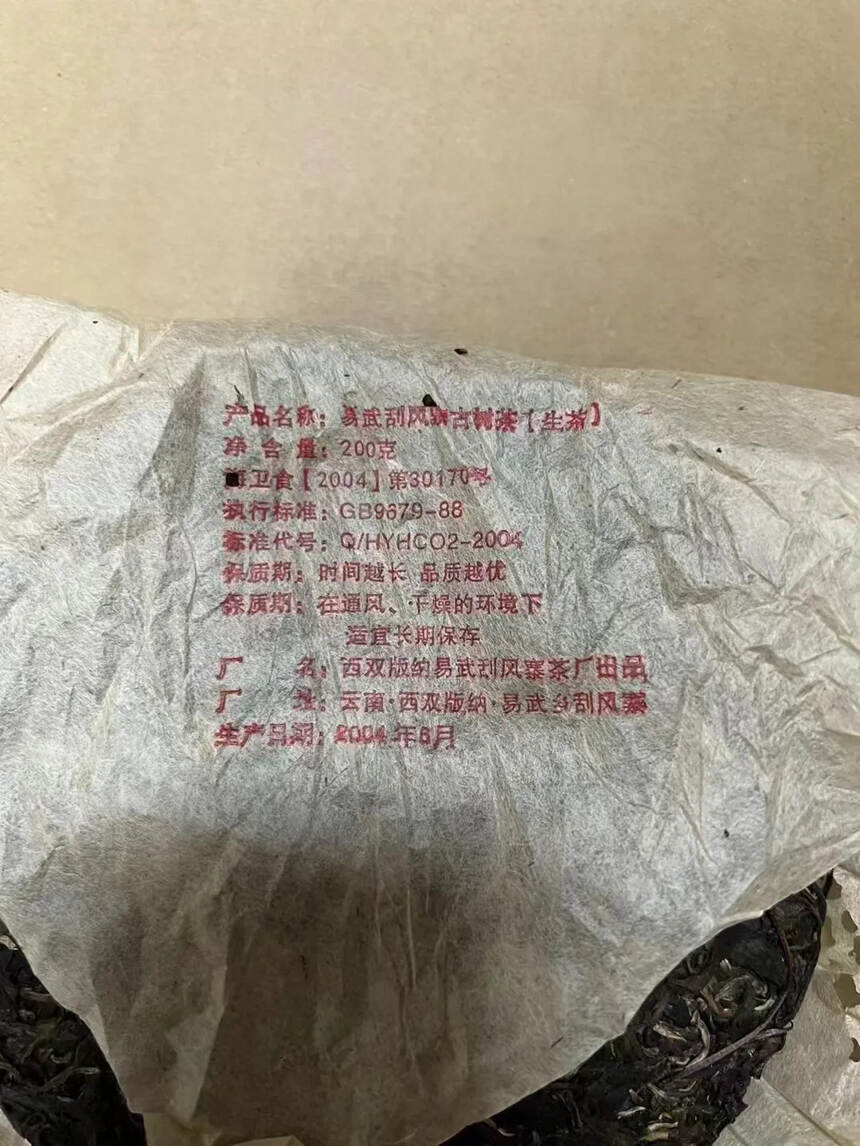 产品名称：易武刮风寨古树茶【生茶】
净 含 量：200克
卫食【2004】第30170号
执行标准：GB9679-88
标准代号：Q/HYHCO2-2004
保质期：时间越长 品质越优
保质期：在通风、干燥的环境下
适宜长期保存
厂 名：西双版纳易武刮风寨茶厂出品
厂 址：云南·西双版纳·易武乡刮风寨
生产日期：2004年6月